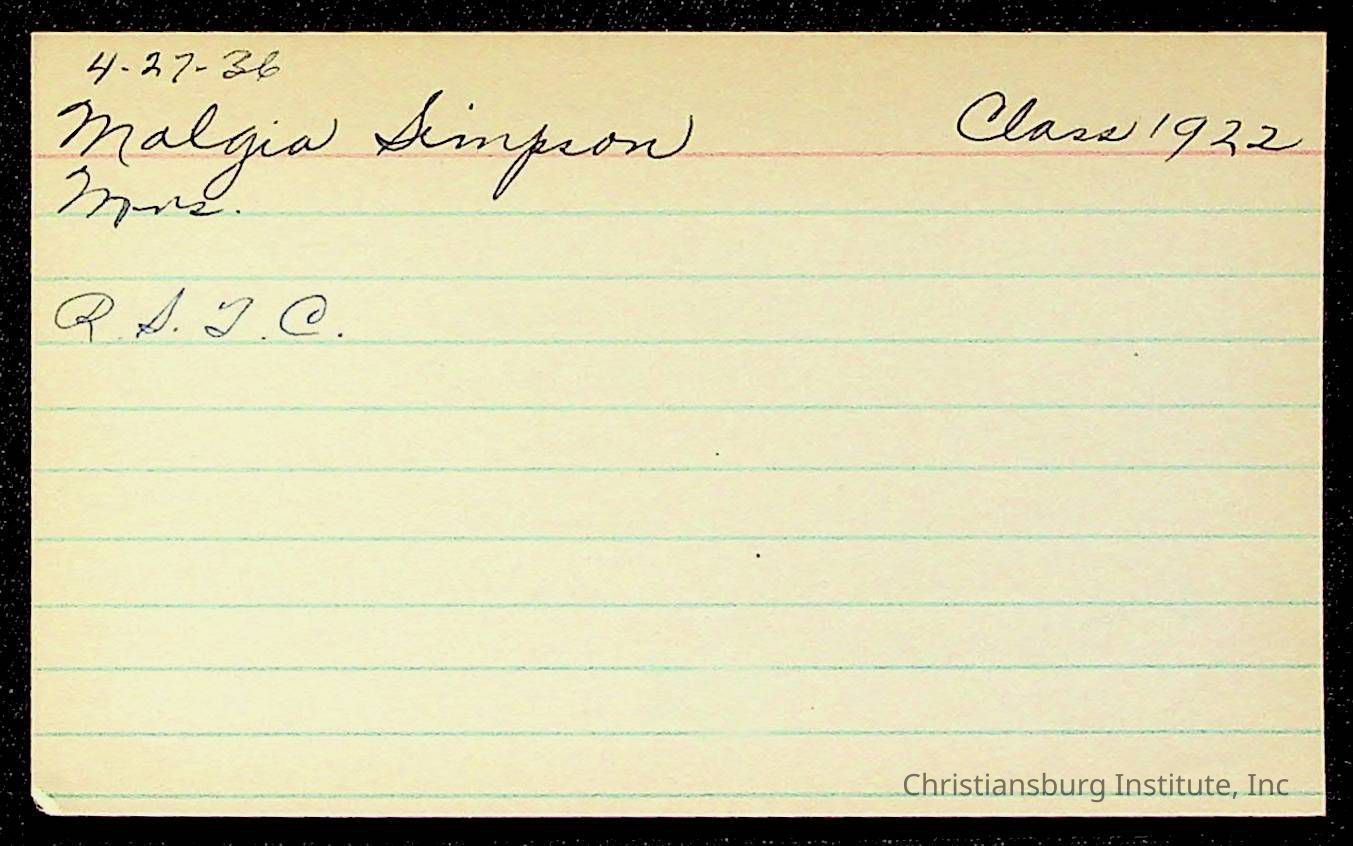 4-27-36
Malgia Simpson Class 1922
Mrs.
R. S. T. C.
Christiansburg Institute, Inc